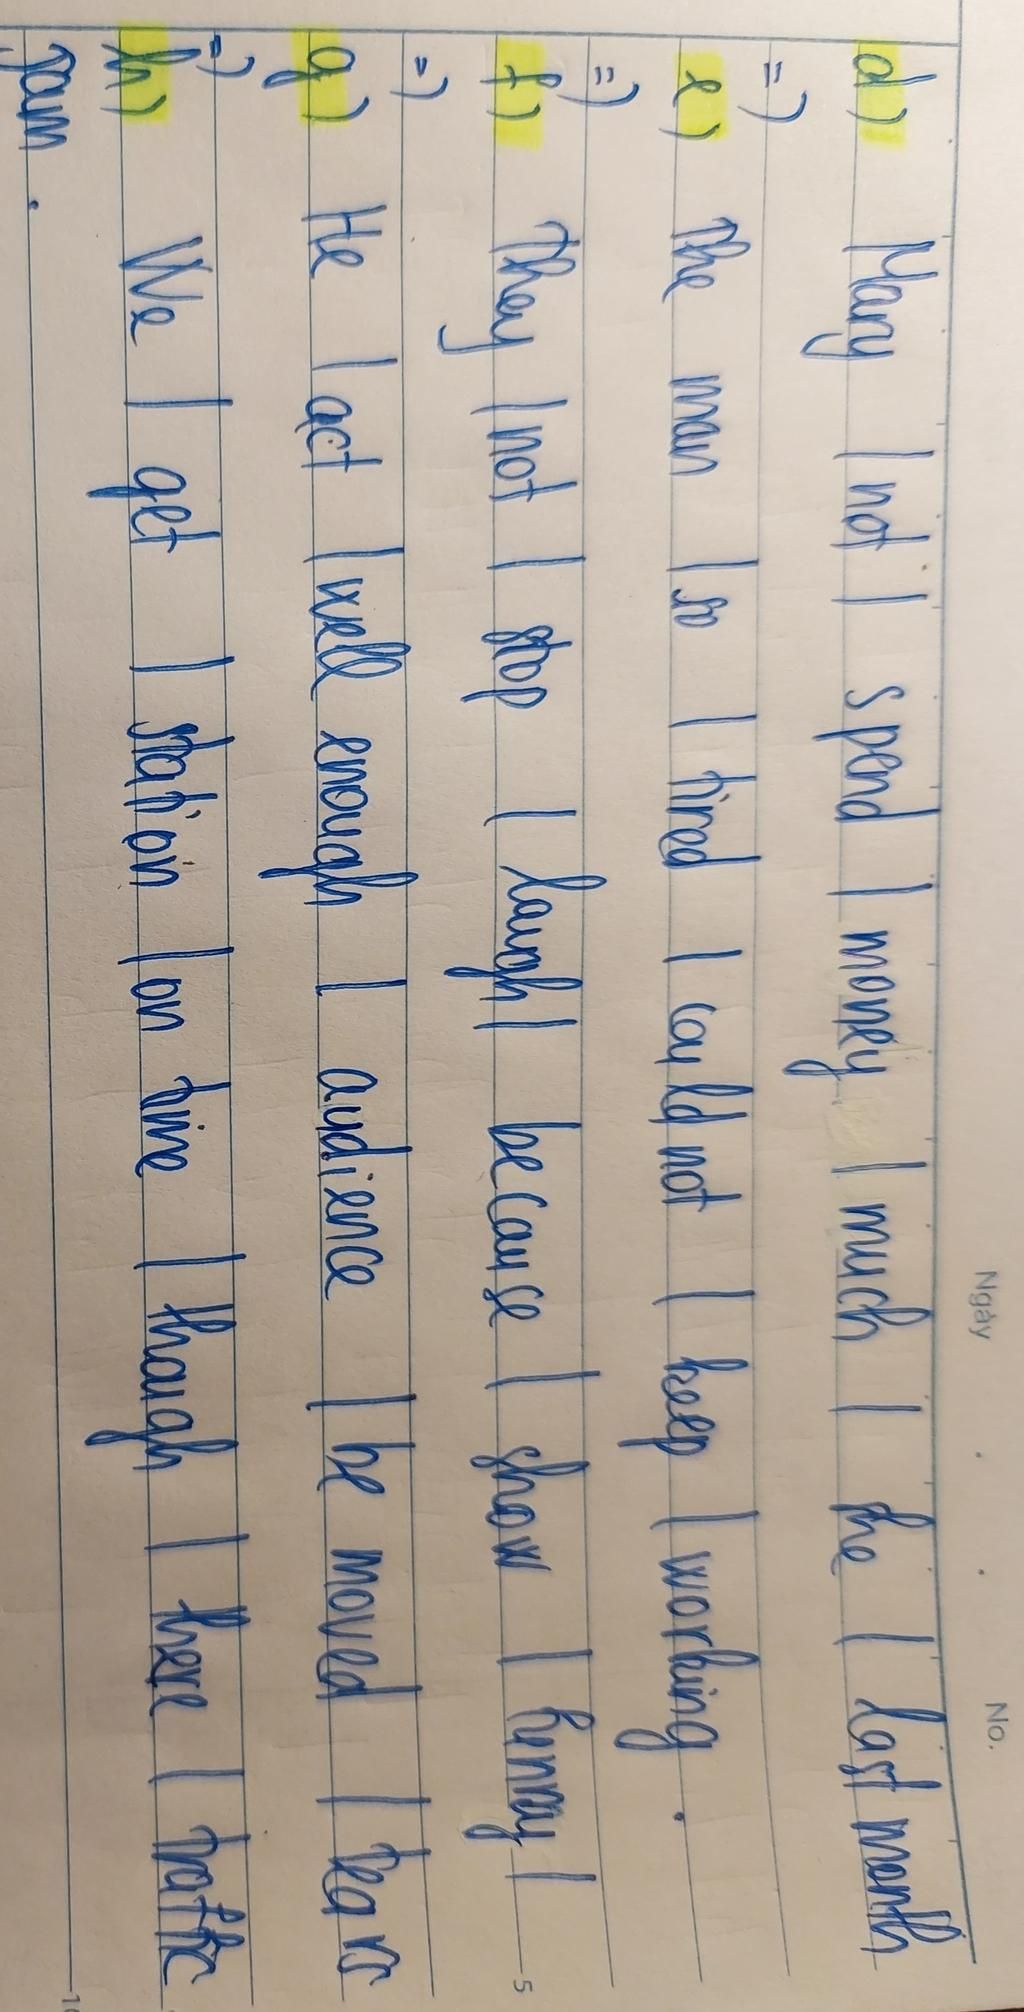 Ngày No.
d) Mary / not / spend / money / much / the / last month
=)
e) The man / so / tired / could not / keep / working.
=)
f) They / not / stop / laugh / because / show / funny /
=) 5
g) He / act / well enough / audience / be moved / tears
=)
h) We / get / station / on time / though / there / traffic
jam. 10